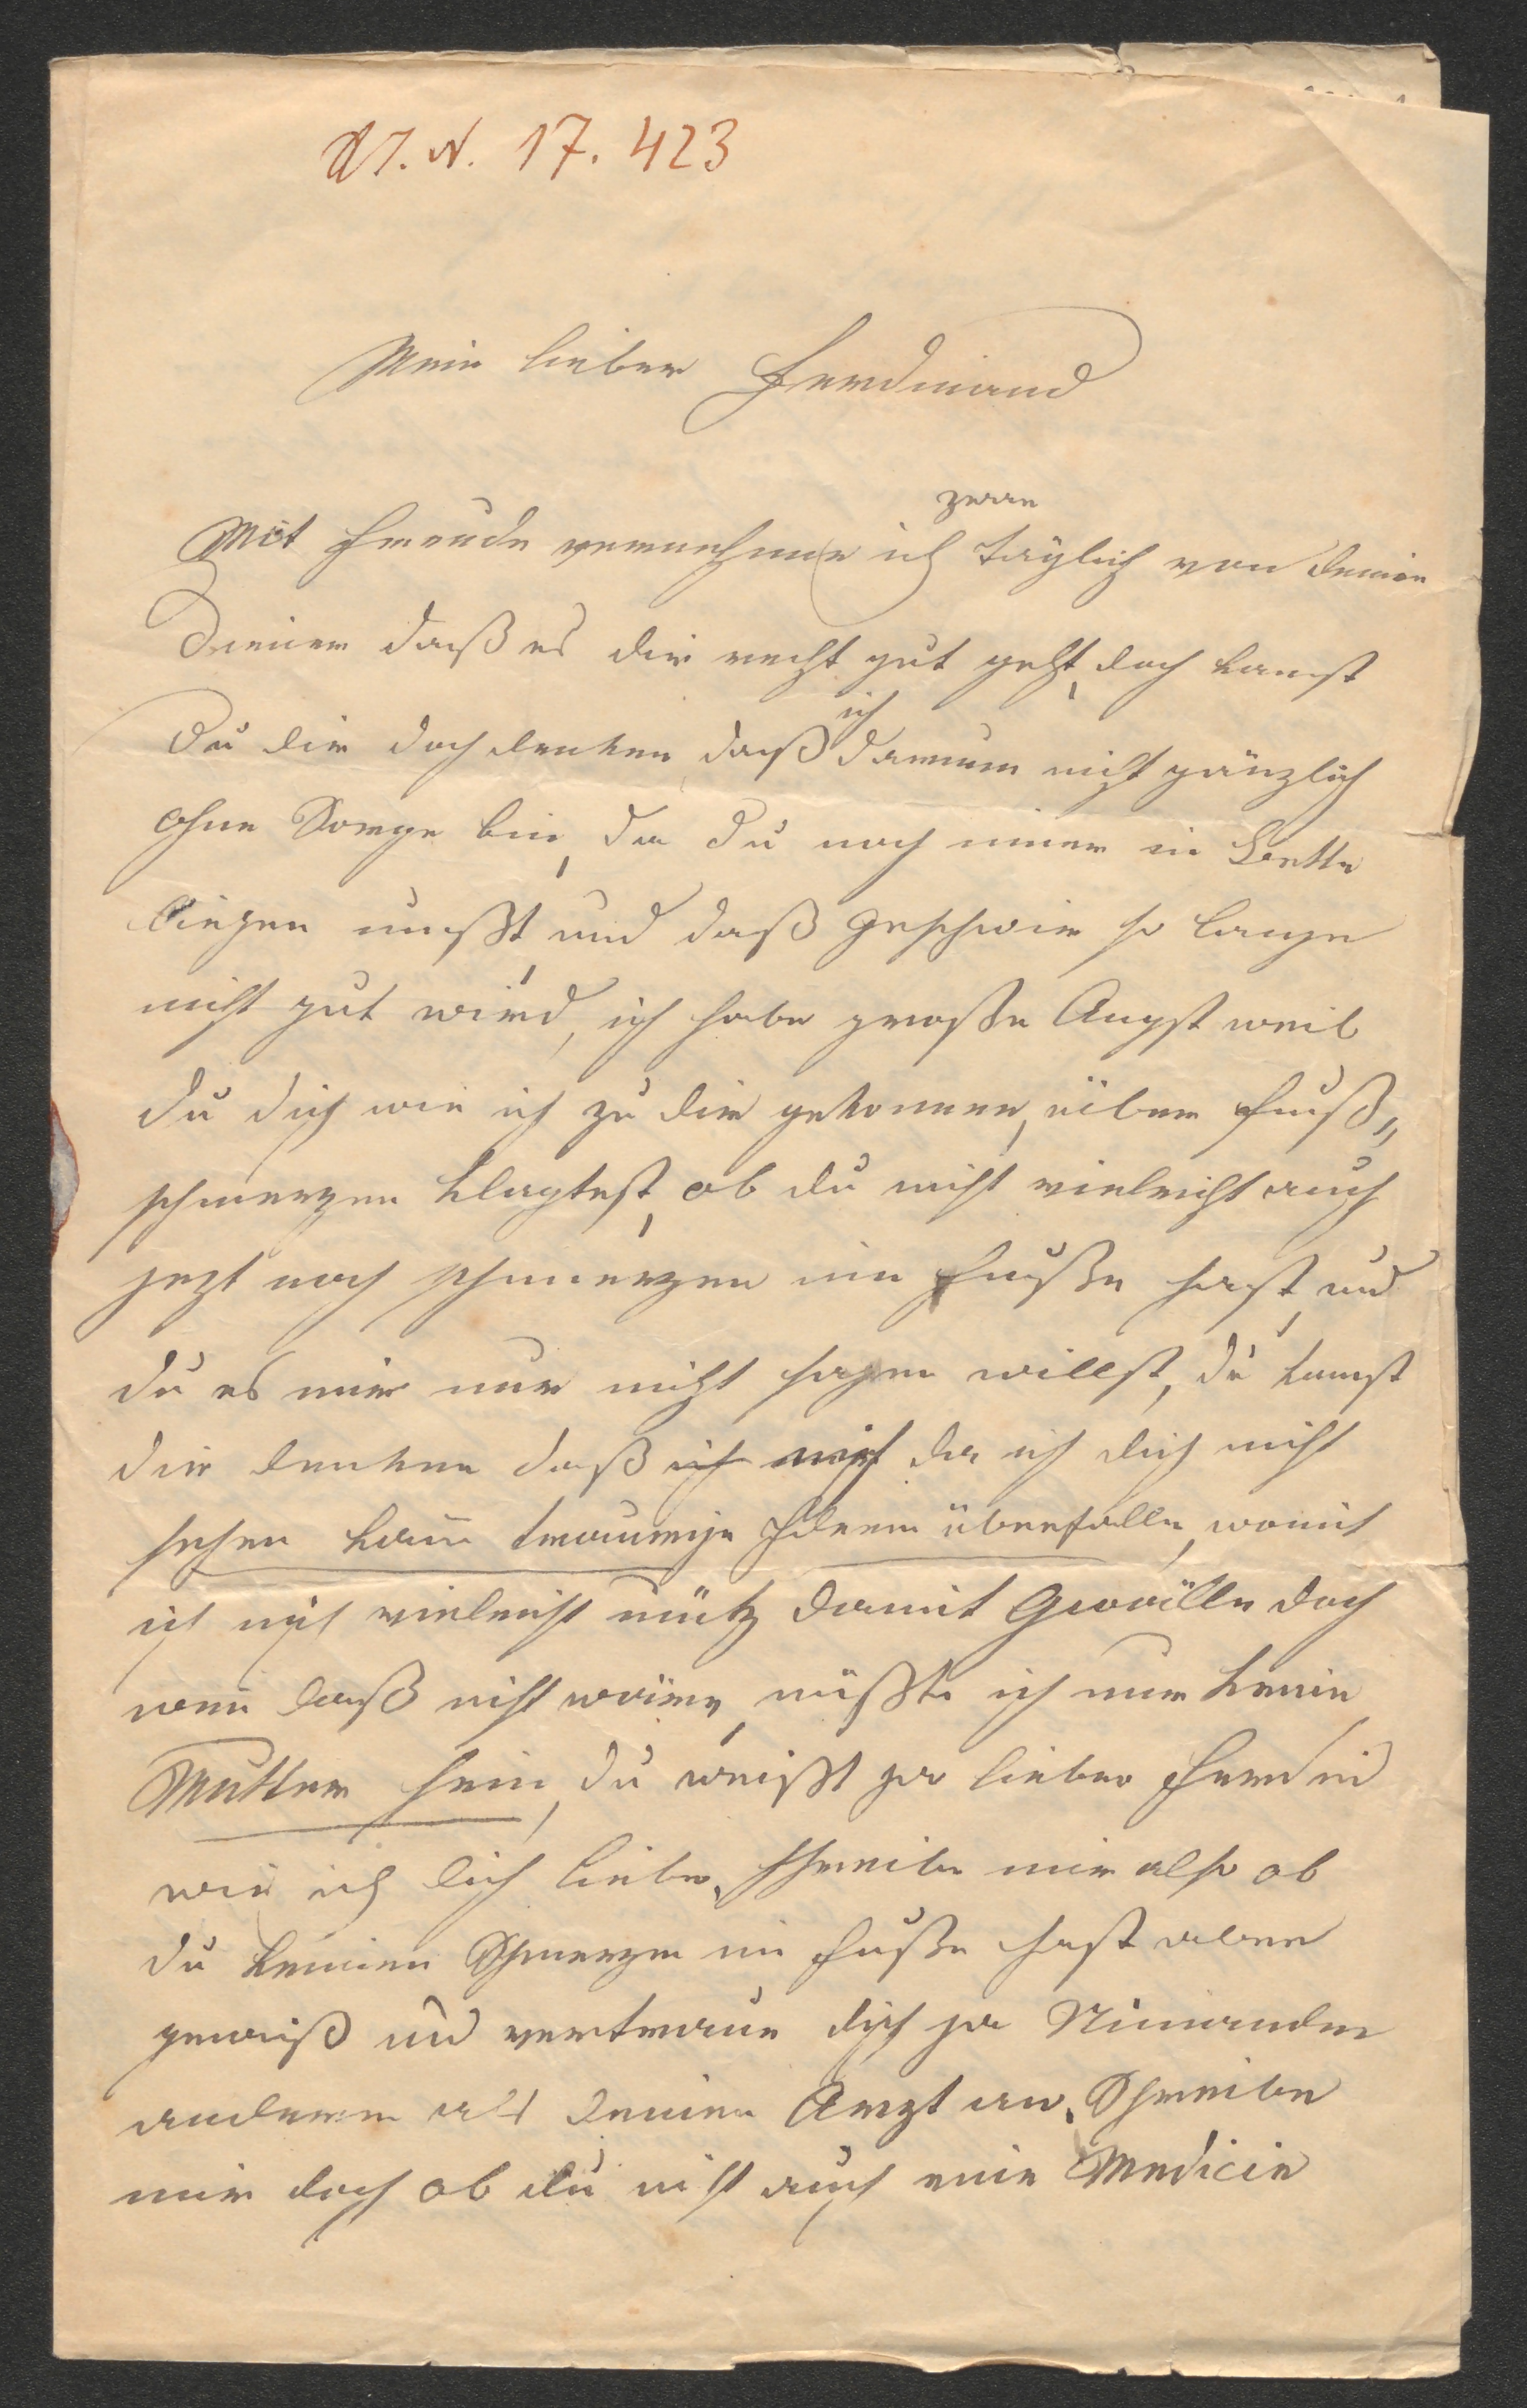 I. N. 17.423
Mein lieber Ferdinand
zwar
Mit Freude vernehme ich täglich von deinen
Diener daß es dir recht gut geht, doch kanst
ich
Du dir doch denken daß darum nicht gänzlich
ohne Sorge bin, da Du noch imer in Bette
liegen mußt, und daß Geschwier so lange
nicht gut wird, ich habe große Angst weil
du dich wie ich zu dir gekommen, über Fuß„
schmerzen klagtest, ob du nicht vieleicht auch
jezt noch schmerzen im Fuße hast, und
du es mir nur nicht sagen willst, du kanst
dir denken daß ich mich da ich dich nicht
sehen kann traurige Ideen überfallen, womit
ich mich vieleicht unütz damit Quälle doch
wen daß nicht wäre, müßte ich nur keine
Mutter sein, du weißt ja lieber Ferdind
wie ich dich liebe, schreibe mir also ob
du keinen Schmerzen im Fuße hast aber
gewiß und vertraue dich ja Nimanden
anderen als deinen Arzt an, Schreibe
mir doch ob du nicht auch eine Medicin